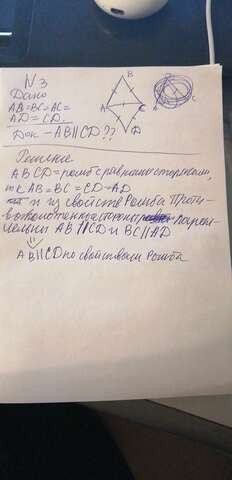 N 3
Дано
AB=BC=AC=
AD=CD.
Док - AB||CD??
B
A
C
D
Решение
ABCD = ромб с равными сторонами,
т.к AB=BC=CD=AD
и из свойств Ромба Проти-
воположенные стороны Парал-
лельны AB||CD и BC||AD
AB||CD по свойствам Ромба